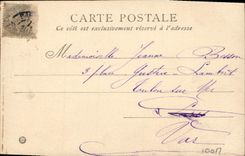 CARTE POSTALE
Ce côté est exclusivement réservé à l'adresse
Mademoiselle Jeanne Besson
3 place Gustave Lambert
Toulon sur Mer
Var